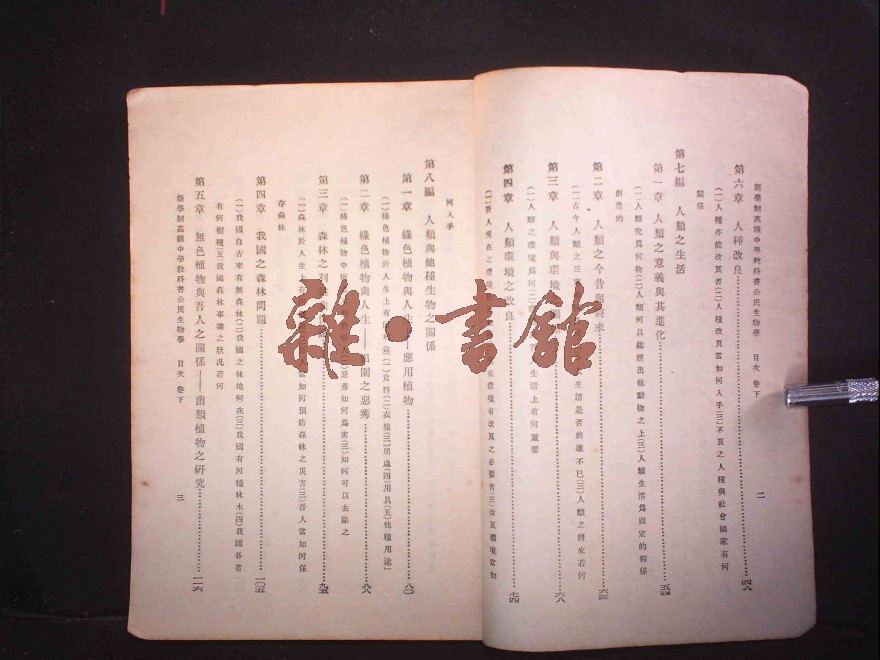 新學制高級中學教科書公民生物學 目次 卷下 二
第六章 人種改良 四八
(一)人種亦能改良否(二)人種改良當如何入手(三)不良之人種與社會國家有何
關係
第七編 人類之生活
第一章 人類之意義與其進化 五四
(一)人類究爲何物(二)人類何以能超出他動物之上(三)人類生活爲固定的抑係
創造的
第二章 人類之今昔與將來 六三
(一)古今人類之 生活是否前進不已(三)人類之將來若何
第三章 人類與環境 六八
(一)人類之環境爲何(二) 生活上有何重要
第四章 人類環境之改良 七四
(一)吾人現在之環境 在環境有改良之必要否(三)改良環境當如
何入手
第八編 人類與他種生物之關係
第一章 綠色植物與人生——應用植物 八〇
(一)綠色植物於人生上有 (一)食料(二)衣服(三)居處(四)用具(五)他種用途」
第二章 綠色植物與人生——田園之惡莠 八八
(一)綠色植物中何 惡莠如何爲害(三)如何可以去除之
第三章 森林之利 九五
(一)森林於人生上有 當如何預防森林之災害(三)吾人當如何保
存森林
第四章 我國之森林問題 一〇五
(一)我國自古來有無森林(二)我國之林地何在(三)我國有何種林木(四)我國各省
有何樹種(五)我國森林事業之狀況若何
第五章 無色植物與吾人之關係——菌類植物之研究 一一六
新學制高級中學教科書公民生物學 目次 卷下 三
雜·書館